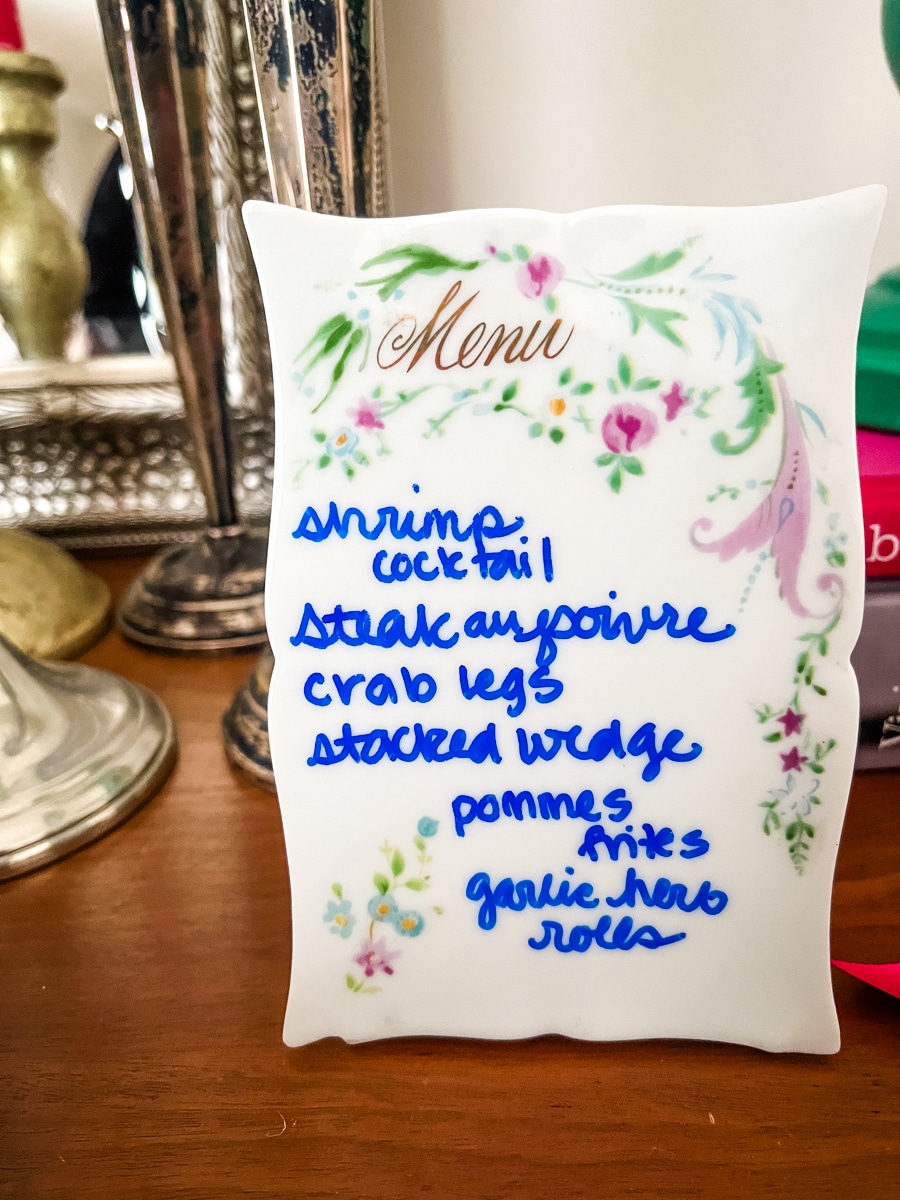 Menu
shrimp
cocktail
steak au poivre
crab legs
stacked wedge
pommes
frites
garlic herb
rolls
b